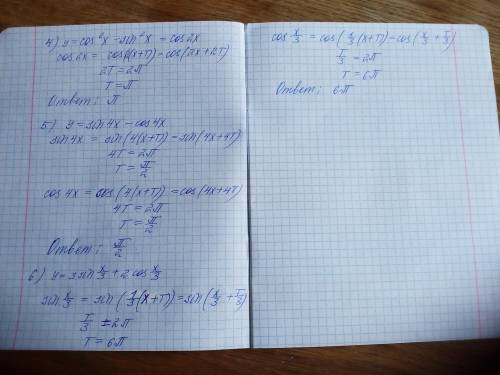 4) y = cos²x - sin²x - cos2x
cos2x = cos(2(x+T)) - cos(2x+2T)
2T = 2π
T = π
Ответ: π
5) y = sin4x - cos4x
sin4x = sin(4(x+T)) - sin(4x+4T)
4T = 2π
T = π/2
cos4x = cos(4(x+T)) = cos(4x+4T)
4T = 2π
T = π/2
Ответ: π/2
6) y = 3sin x/3 + 2cos x/3
sin x/3 = sin(1/3(x+T)) = sin(x/3 + T/3)
T/3 = 2π
T = 6π
cos x/3 = cos(1/3(x+T)) - cos(x/3 + T/3)
T/3 - 2π
T = 6π
Ответ: 6π